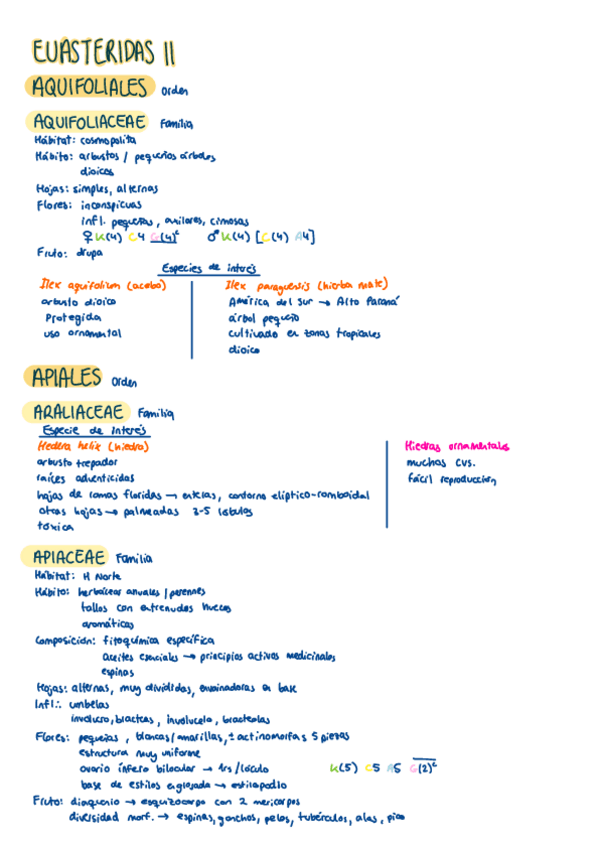 EUASTERIDAS II
AQUIFOLIALES orden
AQUIFOLIACEAE Familia
Hábitat: cosmopolita
Hábito: arbustos / pequeños árboles
dioicos
Hojas: simples, alternas
Flores: inconspicuas
infl. pequeñas, axilares, cimosas
♀ K(4) C4 G(4)² ♂ K(4) [C(4) A4]
Fruto: drupa
Especies de interés
Ilex aquifolium (acebo)
arbusto dioico
Protegida
uso ornamental
Ilex paraguensis (hierba mate)
América del Sur → Alto Paraná
árbol pequeño
cultivado en zonas tropicales
dioico
APIALES Orden
ARALIACEAE Familia
Especie de interés
Hedera helix (hiedra)
arbusto trepador
raíces adventicias
hojas de ramas floridas → enteras, contorno elíptico-romboidal
otras hojas → palmeadas 3-5 lóbulos
tóxica
Hiedras ornamentales
muchas cvs.
fácil reproducción
APIACEAE Familia
Hábitat: H Norte
Hábito: herbáceas anuales / perennes
tallos con entrenudos huecos
aromáticas
Composición: fitoquímica específica
aceites esenciales → principios activos medicinales
espinas
Hojas: alternas, muy divididas, envainadoras en base
Infl.: umbelas
involucro, brácteas, involucelo, bracteolas
Flores: pequeñas, blancas/amarillas, ± actinomorfas 5 piezas
estructura muy uniforme
ovario ínfero bilocular → 1rs/lóculo K(5) C5 A5 G(2)²
base de estilos engrosada → estilopodio
Fruto: diaquenio → esquizocarpo con 2 mericarpos
diversidad morf. → espinas, ganchos, pelos, tubérculos, alas, pico